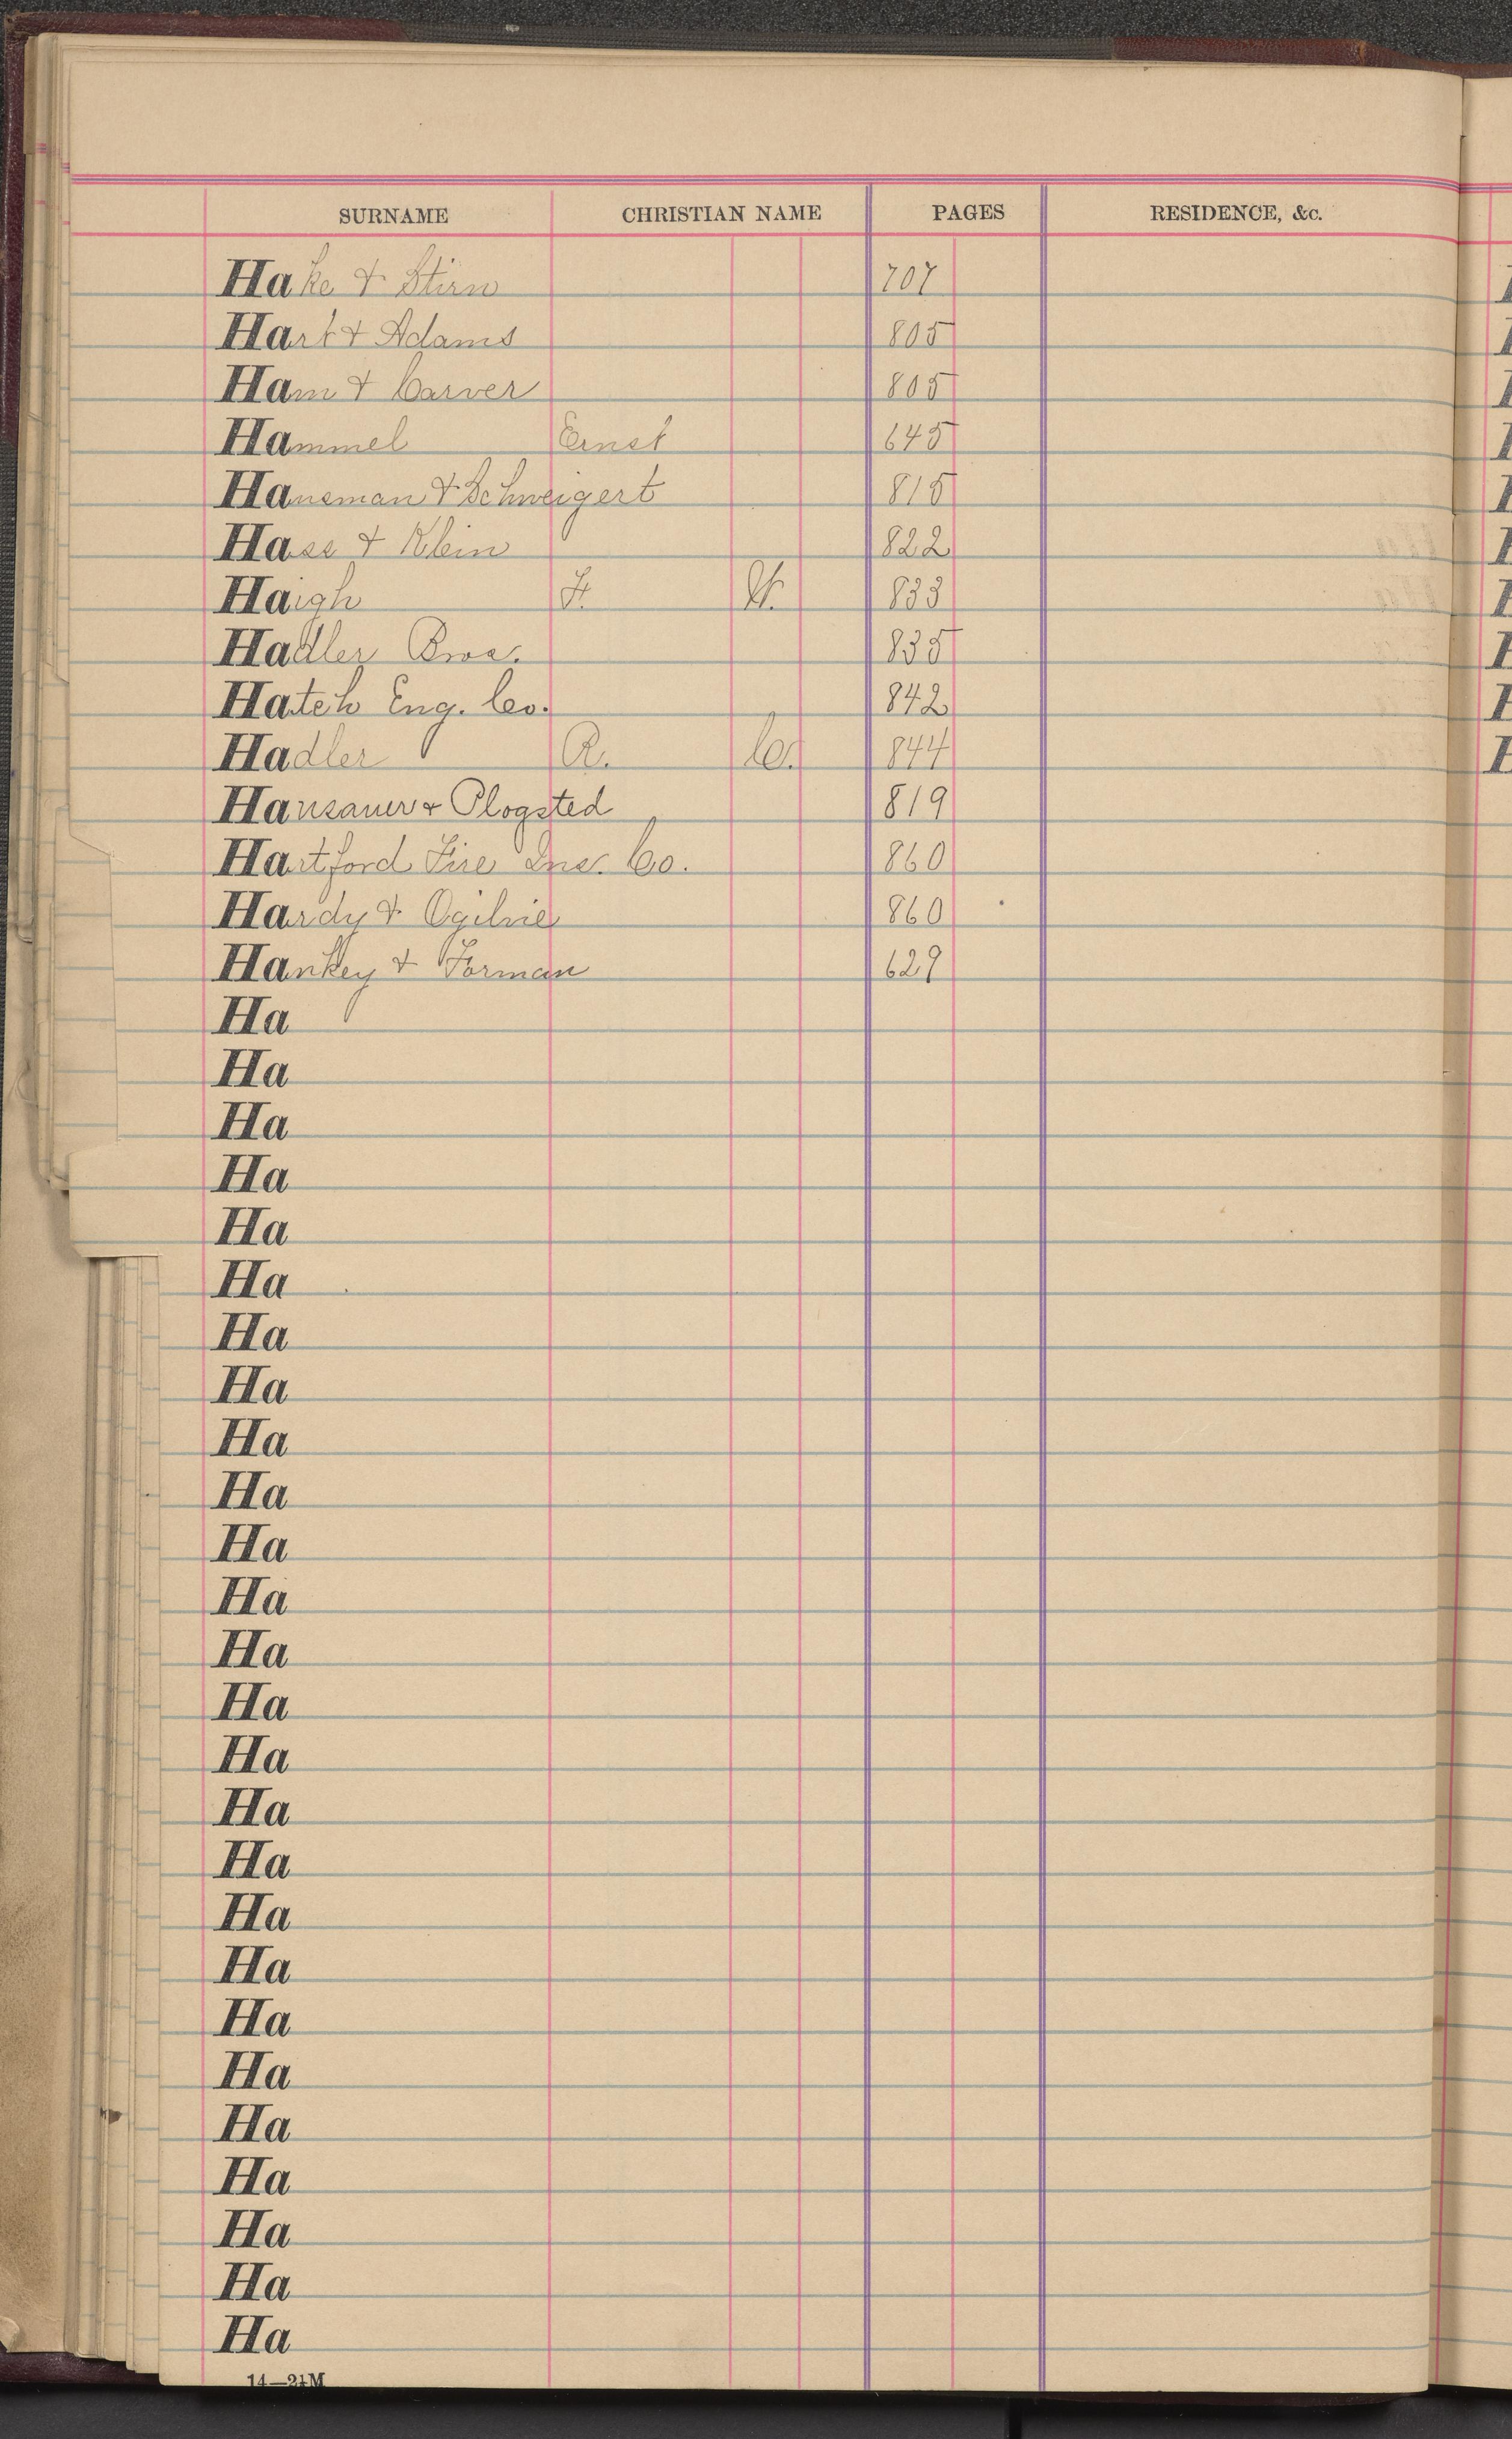 SURNAME CHRISTIAN NAME PAGES RESIDENCE, &c.
Hake & Stirn 707
Hart & Adams 805
Ham & Carver 805
Hammel Ernst 645
Haneman & Schweigert 815
Hass & Klein 822
Haigh F. W. 833
Hadler Bros. 835
Hatch Eng. Co. 842
Hadler R. C. 844
Hansauer & Plogsted 819
Hartford Fire Ins. Co. 860
Hardy & Ogilvie 860
Hankey & Forman 629
Ha
Ha
Ha
Ha
Ha
Ha
Ha
Ha
Ha
Ha
Ha
Ha
Ha
Ha
Ha
Ha
Ha
Ha
Ha
Ha
Ha
Ha
Ha
Ha
Ha
Ha
14—21M